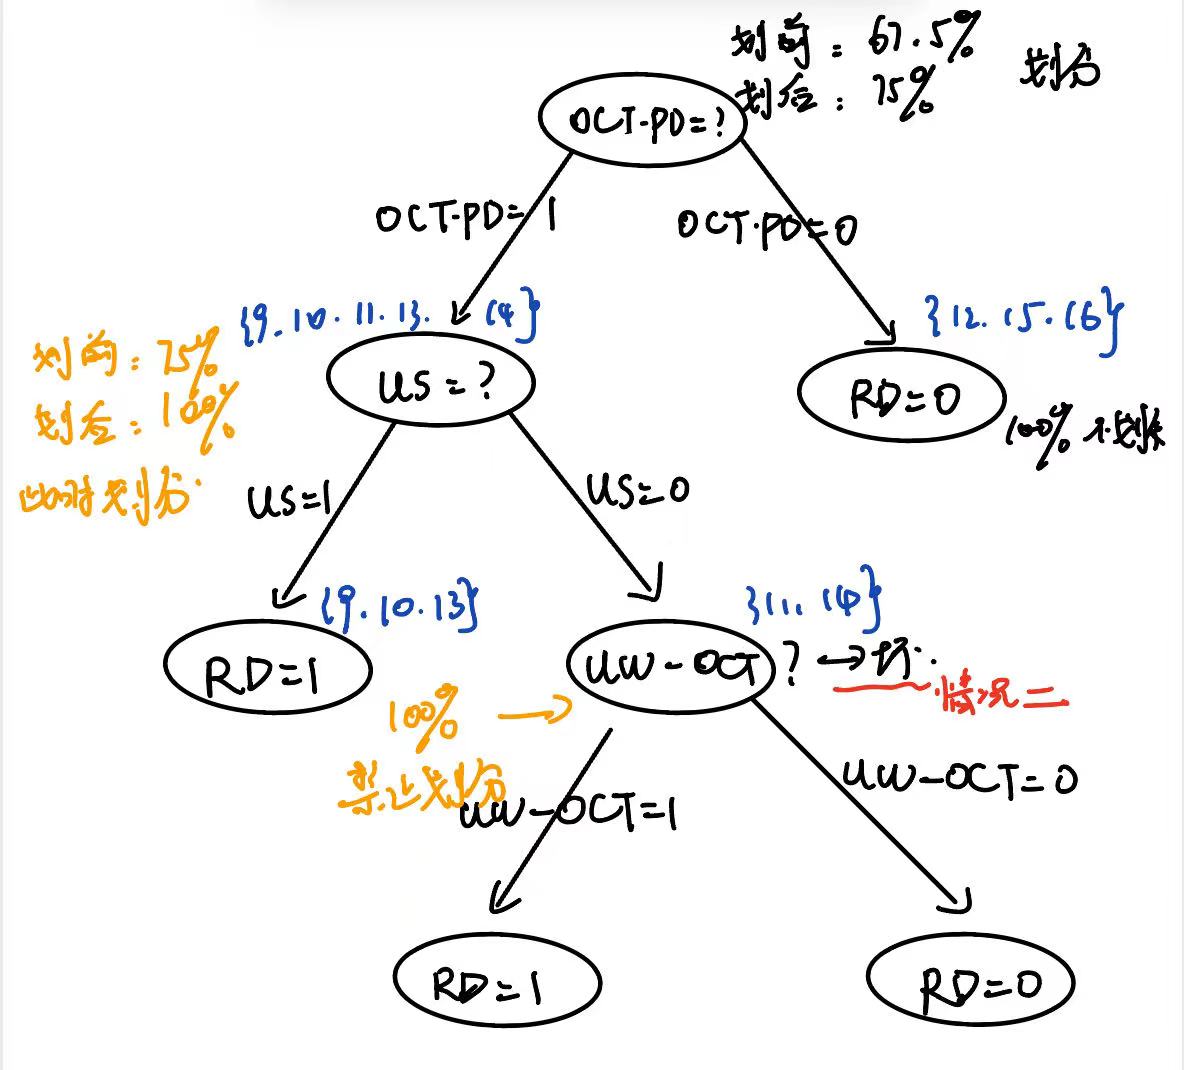 划前：67.5%
划后：75%
划分
OCT-PD=?
OCT-PD=1
OCT·PD=0
{9.10.11.13.14}
{12.15.16}
划前：75%
划后：100%
此时划分.
US=?
RD=0
100% 不划分
US=1
US=0
{9.10.13}
{11.14}
RD=1
UW-OCT?
情况二
100%
禁止划分
UW-OCT=1
UW-OCT=0
RD=1
RD=0